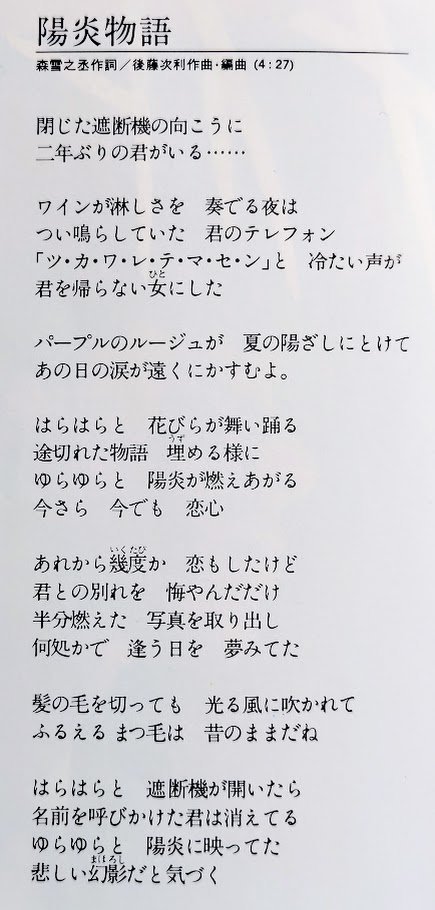 陽炎物語
森雪之丞作詞／後藤次利作曲・編曲 (4:27)
閉じた遮断機の向こうに
二年ぶりの君がいる……
ワインが淋しさを　奏でる夜は
つい鳴らしていた　君のテレフォン
「ツ・カ・ワ・レ・テ・マ・セ・ン」と　冷たい声が
ひと
君を帰らない女にした
パープルのルージュが　夏の陽ざしにとけて
あの日の涙が遠くにかすむよ。
はらはらと　花びらが舞い踊る
うず
途切れた物語　埋める様に
ゆらゆらと　陽炎が燃えあがる
今さら　今でも　恋心
いくたび
あれから幾度か　恋もしたけど
君との別れを　悔やんだだけ
半分燃えた　写真を取り出し
何処かで　逢う日を　夢みてた
髪の毛を切っても　光る風に吹かれて
ふるえる まつ毛は　昔のままだね
はらはらと　遮断機が開いたら
名前を呼びかけた君は消えてる
ゆらゆらと　陽炎に映ってた
まぼろし
悲しい幻影だと気づく